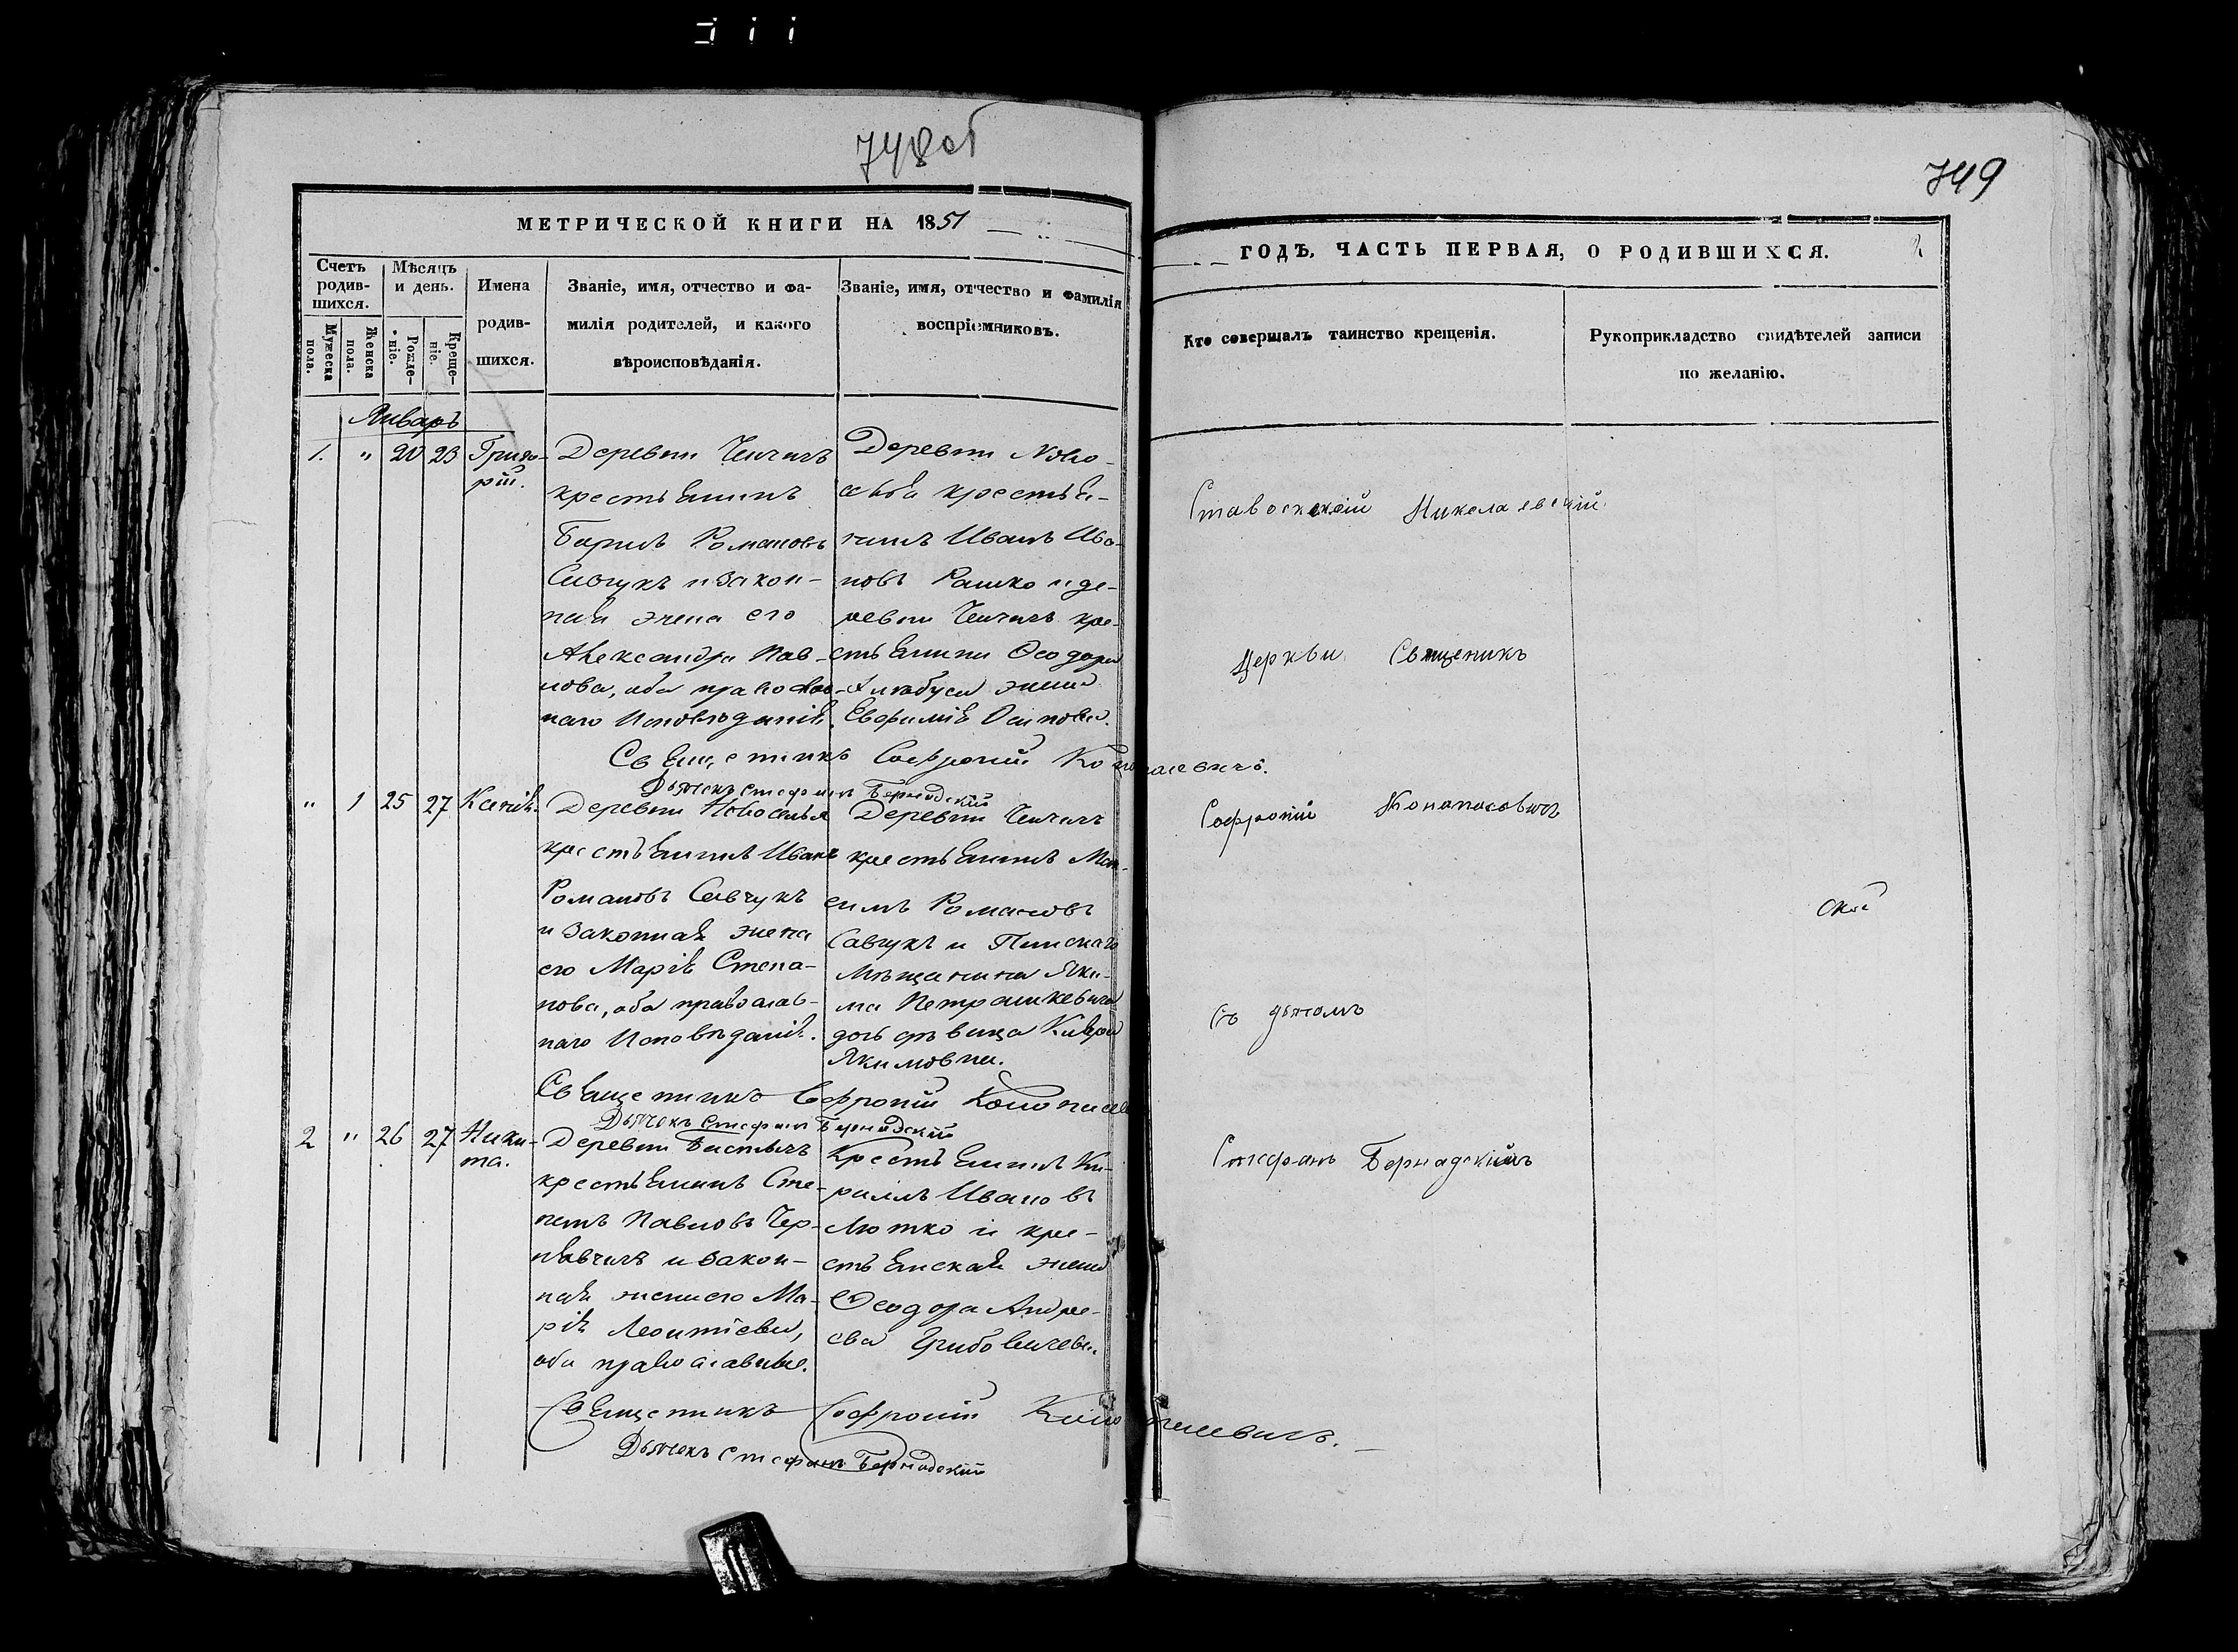 748об
749
МЕТРИЧЕСКОЙ КНИГИ НА 1851
ГОДЪ, ЧАСТЬ ПЕРВАЯ, О РОДИВШИХСЯ.
Счетъ родив-шихся.
Мужеска пола.
Женска пола.
Мѣсяцъ и день.
Рожде-ніе.
Креще-ніе.
Имена
родив-
шихся.
Званіе, имя, отчество и фа-
милія родителей, и какого
вѣроисповѣданія.
Званіе, имя, отчество и фамилія
воспріемниковъ.
Кто совершалъ таинство крещенія.
Рукоприкладство свидѣтелей записи
по желанію.
Январь
1. " 20 23 Григо-
рій.
Деревни
крестьянинъ
Романовъ
и закон-
ная жена его
Александра Пав-
лова, оба православ-
наго Исповѣданія.
Деревни Ново-
селья крестья-
нинъ Иванъ Ива-
новъ Рашко и де-
ревни кре-
стьянина Ѳеодора
жена
Евфимія Осипова.
Священникъ Софроній Конопасевичъ.
Дьячекъ Стефанъ Бернадскій
" 1 25 27 Ксенія.
Деревни Новоселья
крестьянинъ Иванъ
Романовъ Савчукъ
и законная жена
его Марія Степа-
нова, оба православ-
наго Исповѣданія.
Деревни
крестьянинъ Мак-
симъ Романовъ
Савчукъ и Пинскаго
мѣщанина Яки-
ма Петрашкевича
дочь дѣвица
Якимовна.
Священникъ Софроній Конопасев
Дьячекъ Стефанъ Бернадскій
2 " 26 27 Ники-
та.
Деревни
крестьянинъ Сте-
панъ Павловъ Чер-
и закон-
ная жена его Ма-
рія Леонтіева,
оба православные.
Крестьянинъ Ки-
рилъ Ивановъ
Лютко и кре-
стьянская жена
Ѳеодора Андре-
ева
Священникъ Софроній Конопасевичъ.
Дьячекъ Стефанъ Бернадскій
Николаевскій
Церкви Священикъ
Софроній Конопасевичъ
съ дьякомъ
Стефанъ Бернадскимъ